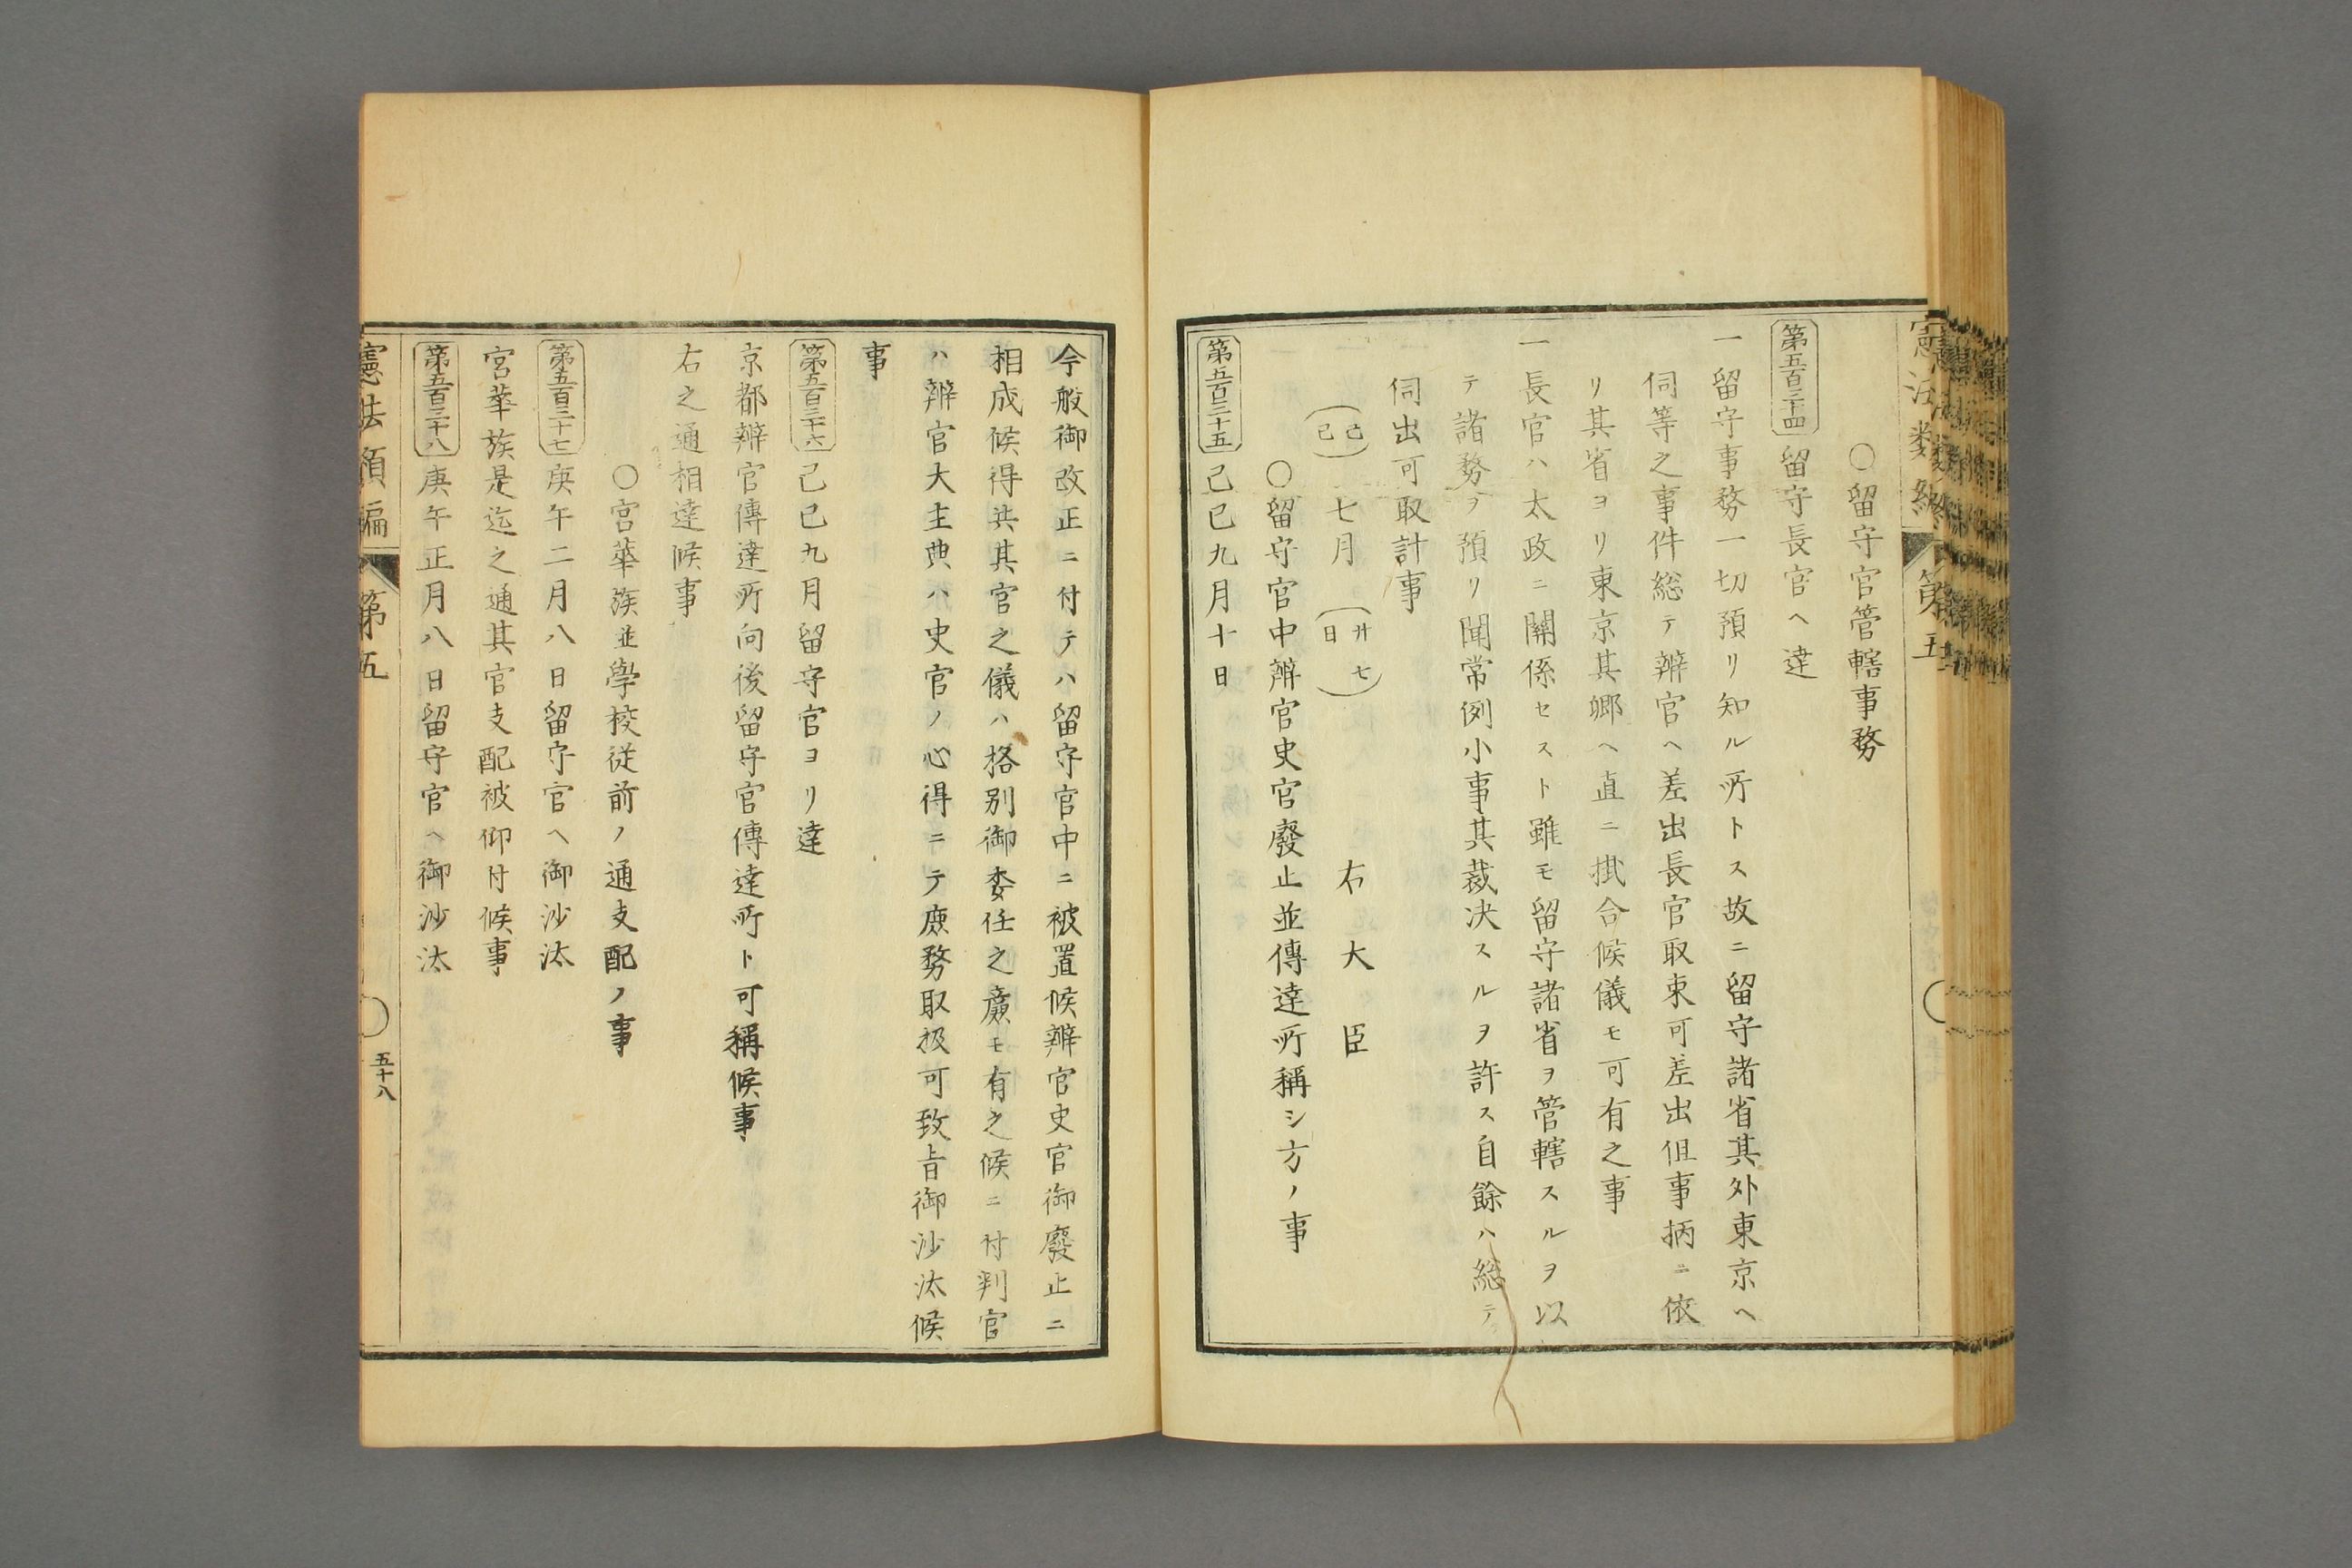 ○留守官管轄事務
第五百三十四 留守長官ヘ達
一留守事務一切預リ知ル所トス故ニ留守諸省其外東京ヘ
伺等之事件総テ辨官ヘ差出長官取束可差出但事柄ニ依
リ其省ヨリ東京其卿ヘ直ニ掛合候儀モ可有之事
一長官ハ太政ニ關係セスト雖モ留守諸省ヲ管轄スルヲ以
テ諸務ヲ預リ聞常例小事其裁决スルヲ許ス自餘ハ総テ
伺出可取計事
(己巳)七月(廿七日) 右大臣
○留守官中辨官史官廢止並傳達所稱シ方ノ事
第五百三十五 己巳九月十日
今般御改正ニ付テハ留守官中ニ被置候辨官史官御廢止ニ
相成候得共其官之儀ハ格別御委任之廉モ有之候ニ付判官
ハ辨官大主典ハ史官ノ心得ニテ庶務取扱可致旨御沙汰候
事
第五百三十六 己巳九月留守官ヨリ達
京都辨官傳達所向後留守官傳達所ト可稱候事
右之通相達候事
○宮華族並學校従前ノ通支配ノ事
第五百三十七 庚午二月八日留守官ヘ御沙汰
宮華族是迄之通其官支配被仰付候事
第五百三十八 庚午正月八日留守官ヘ御沙汰
憲法類編 第五
五十八